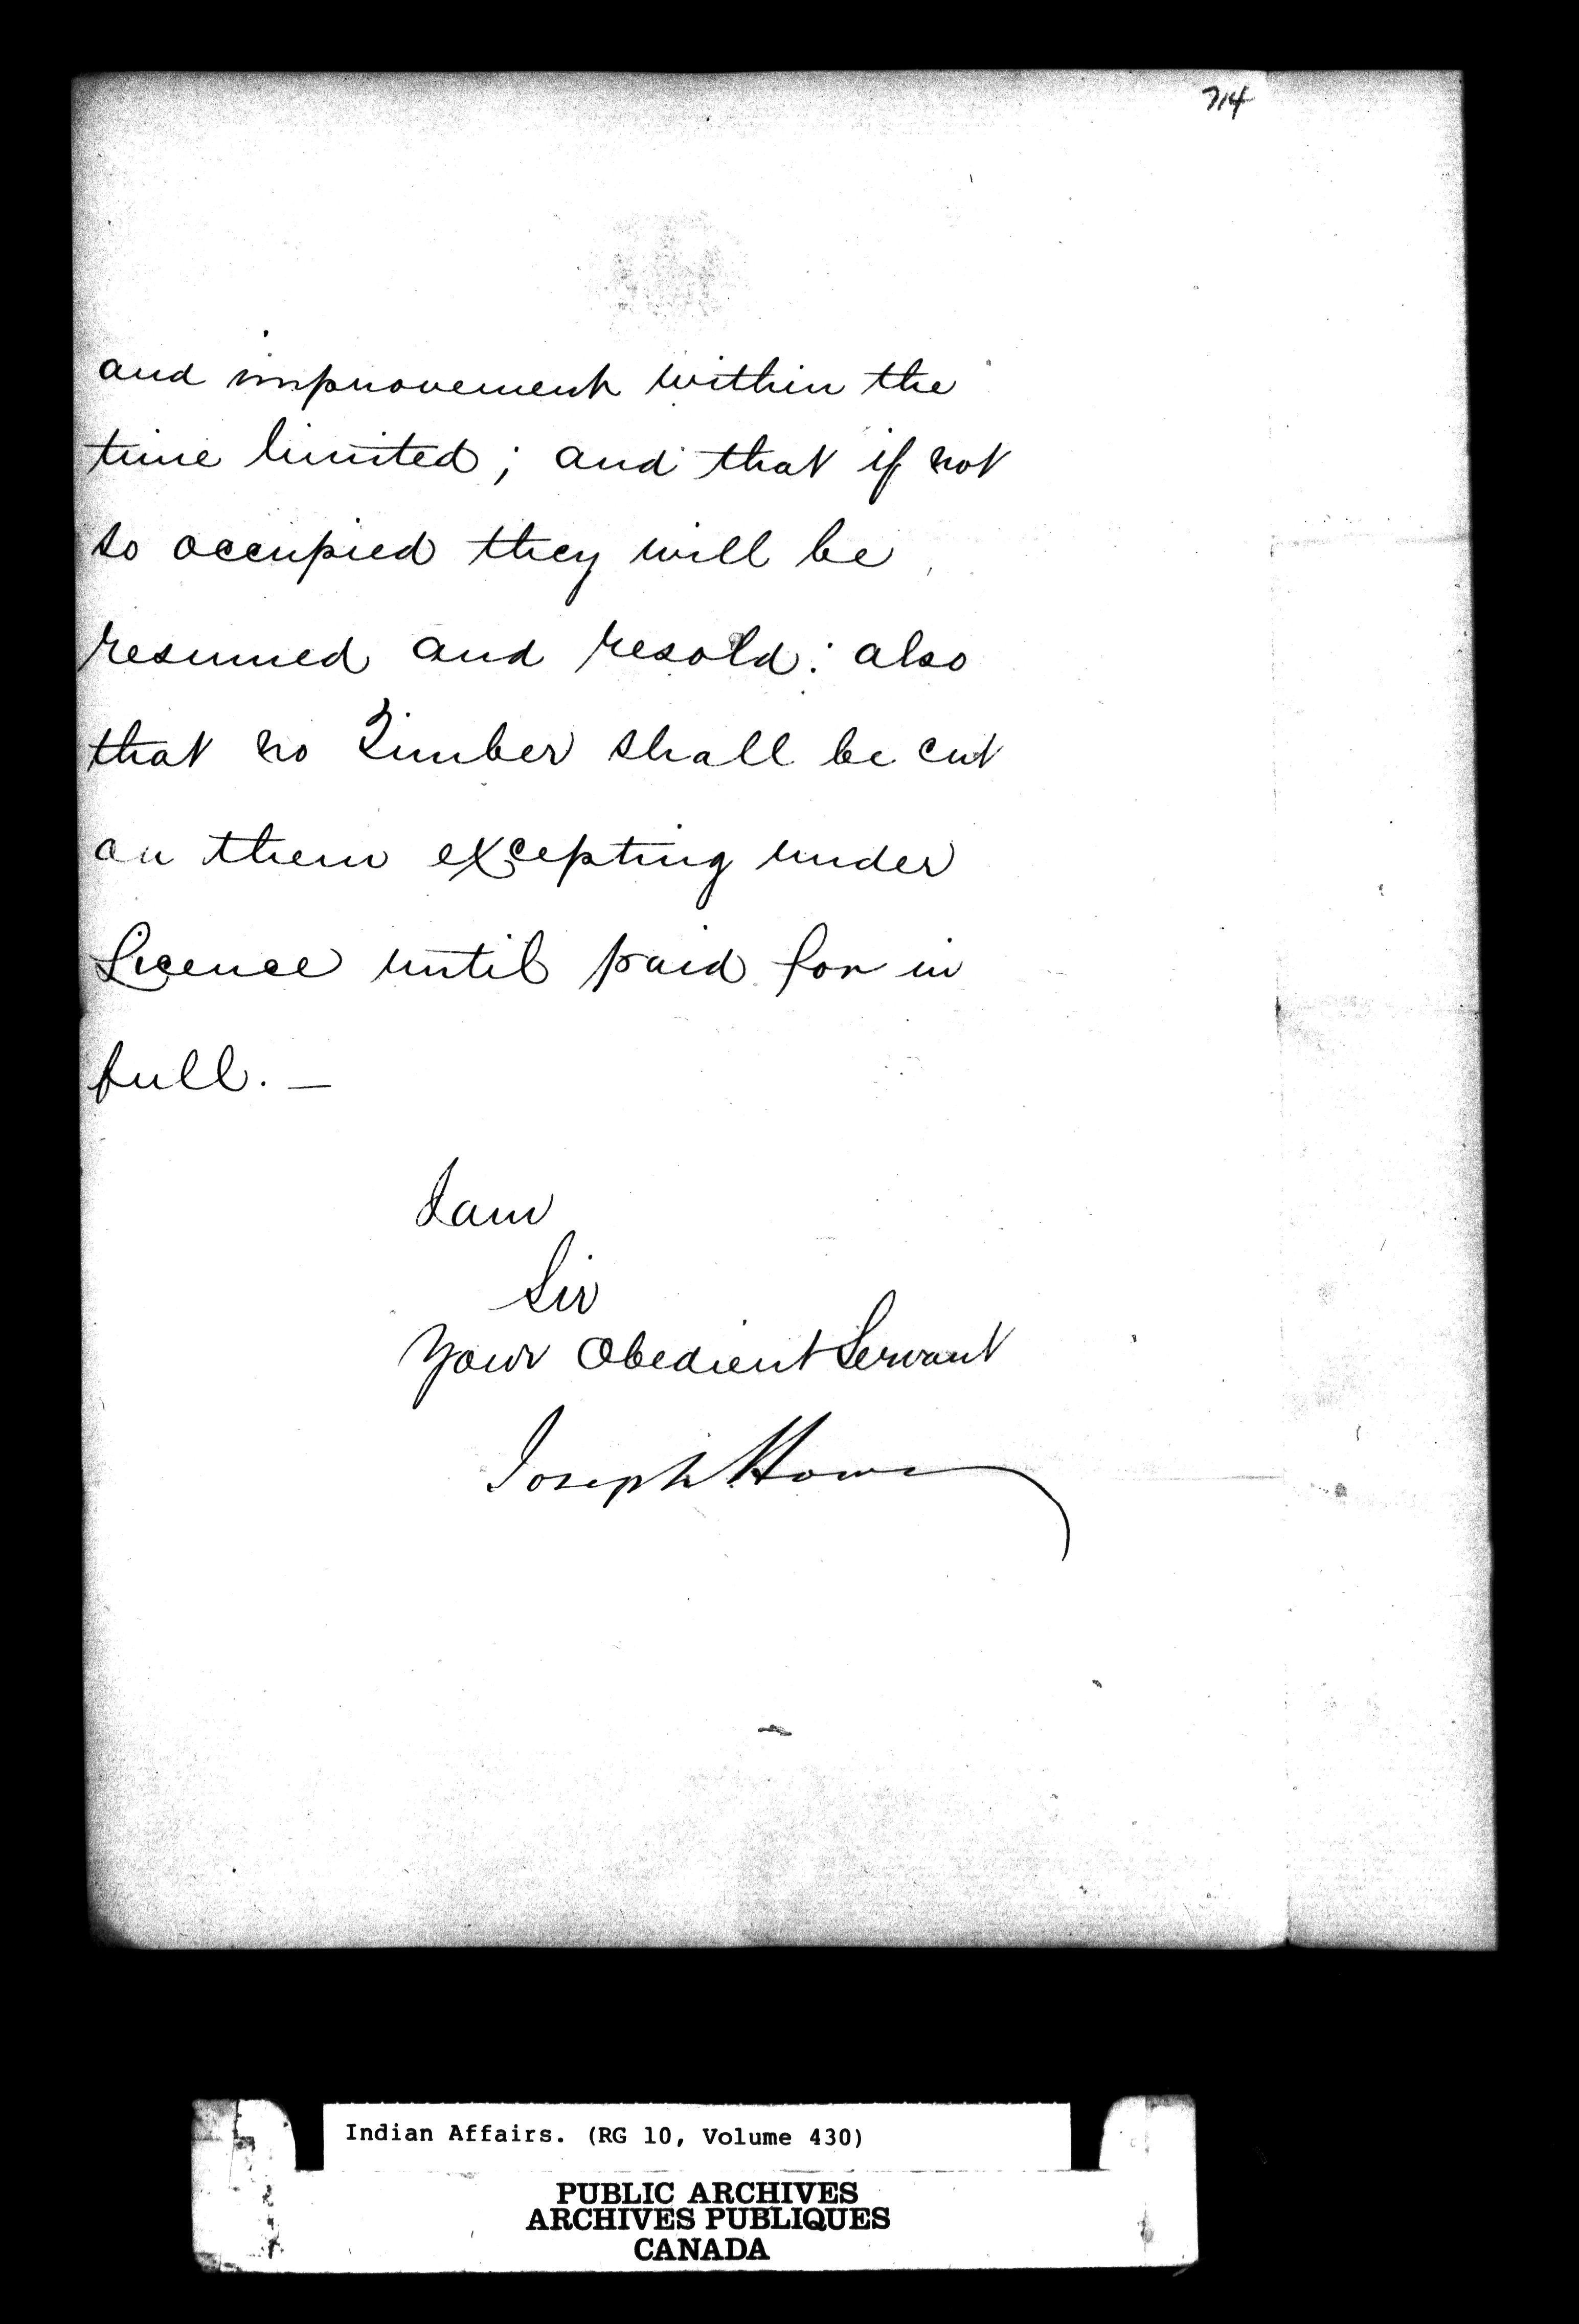 714
and improvement within the
time limited; and that if not
so occupied they will be
resumed and resold: also
that no Timber shall be cut
on them excepting under
Licence until paid for in
full. —
I am
Sir
Your Obedient Servant
Joseph Howe
Indian Affairs. (RG 10, Volume 430)
PUBLIC ARCHIVES
ARCHIVES PUBLIQUES
CANADA